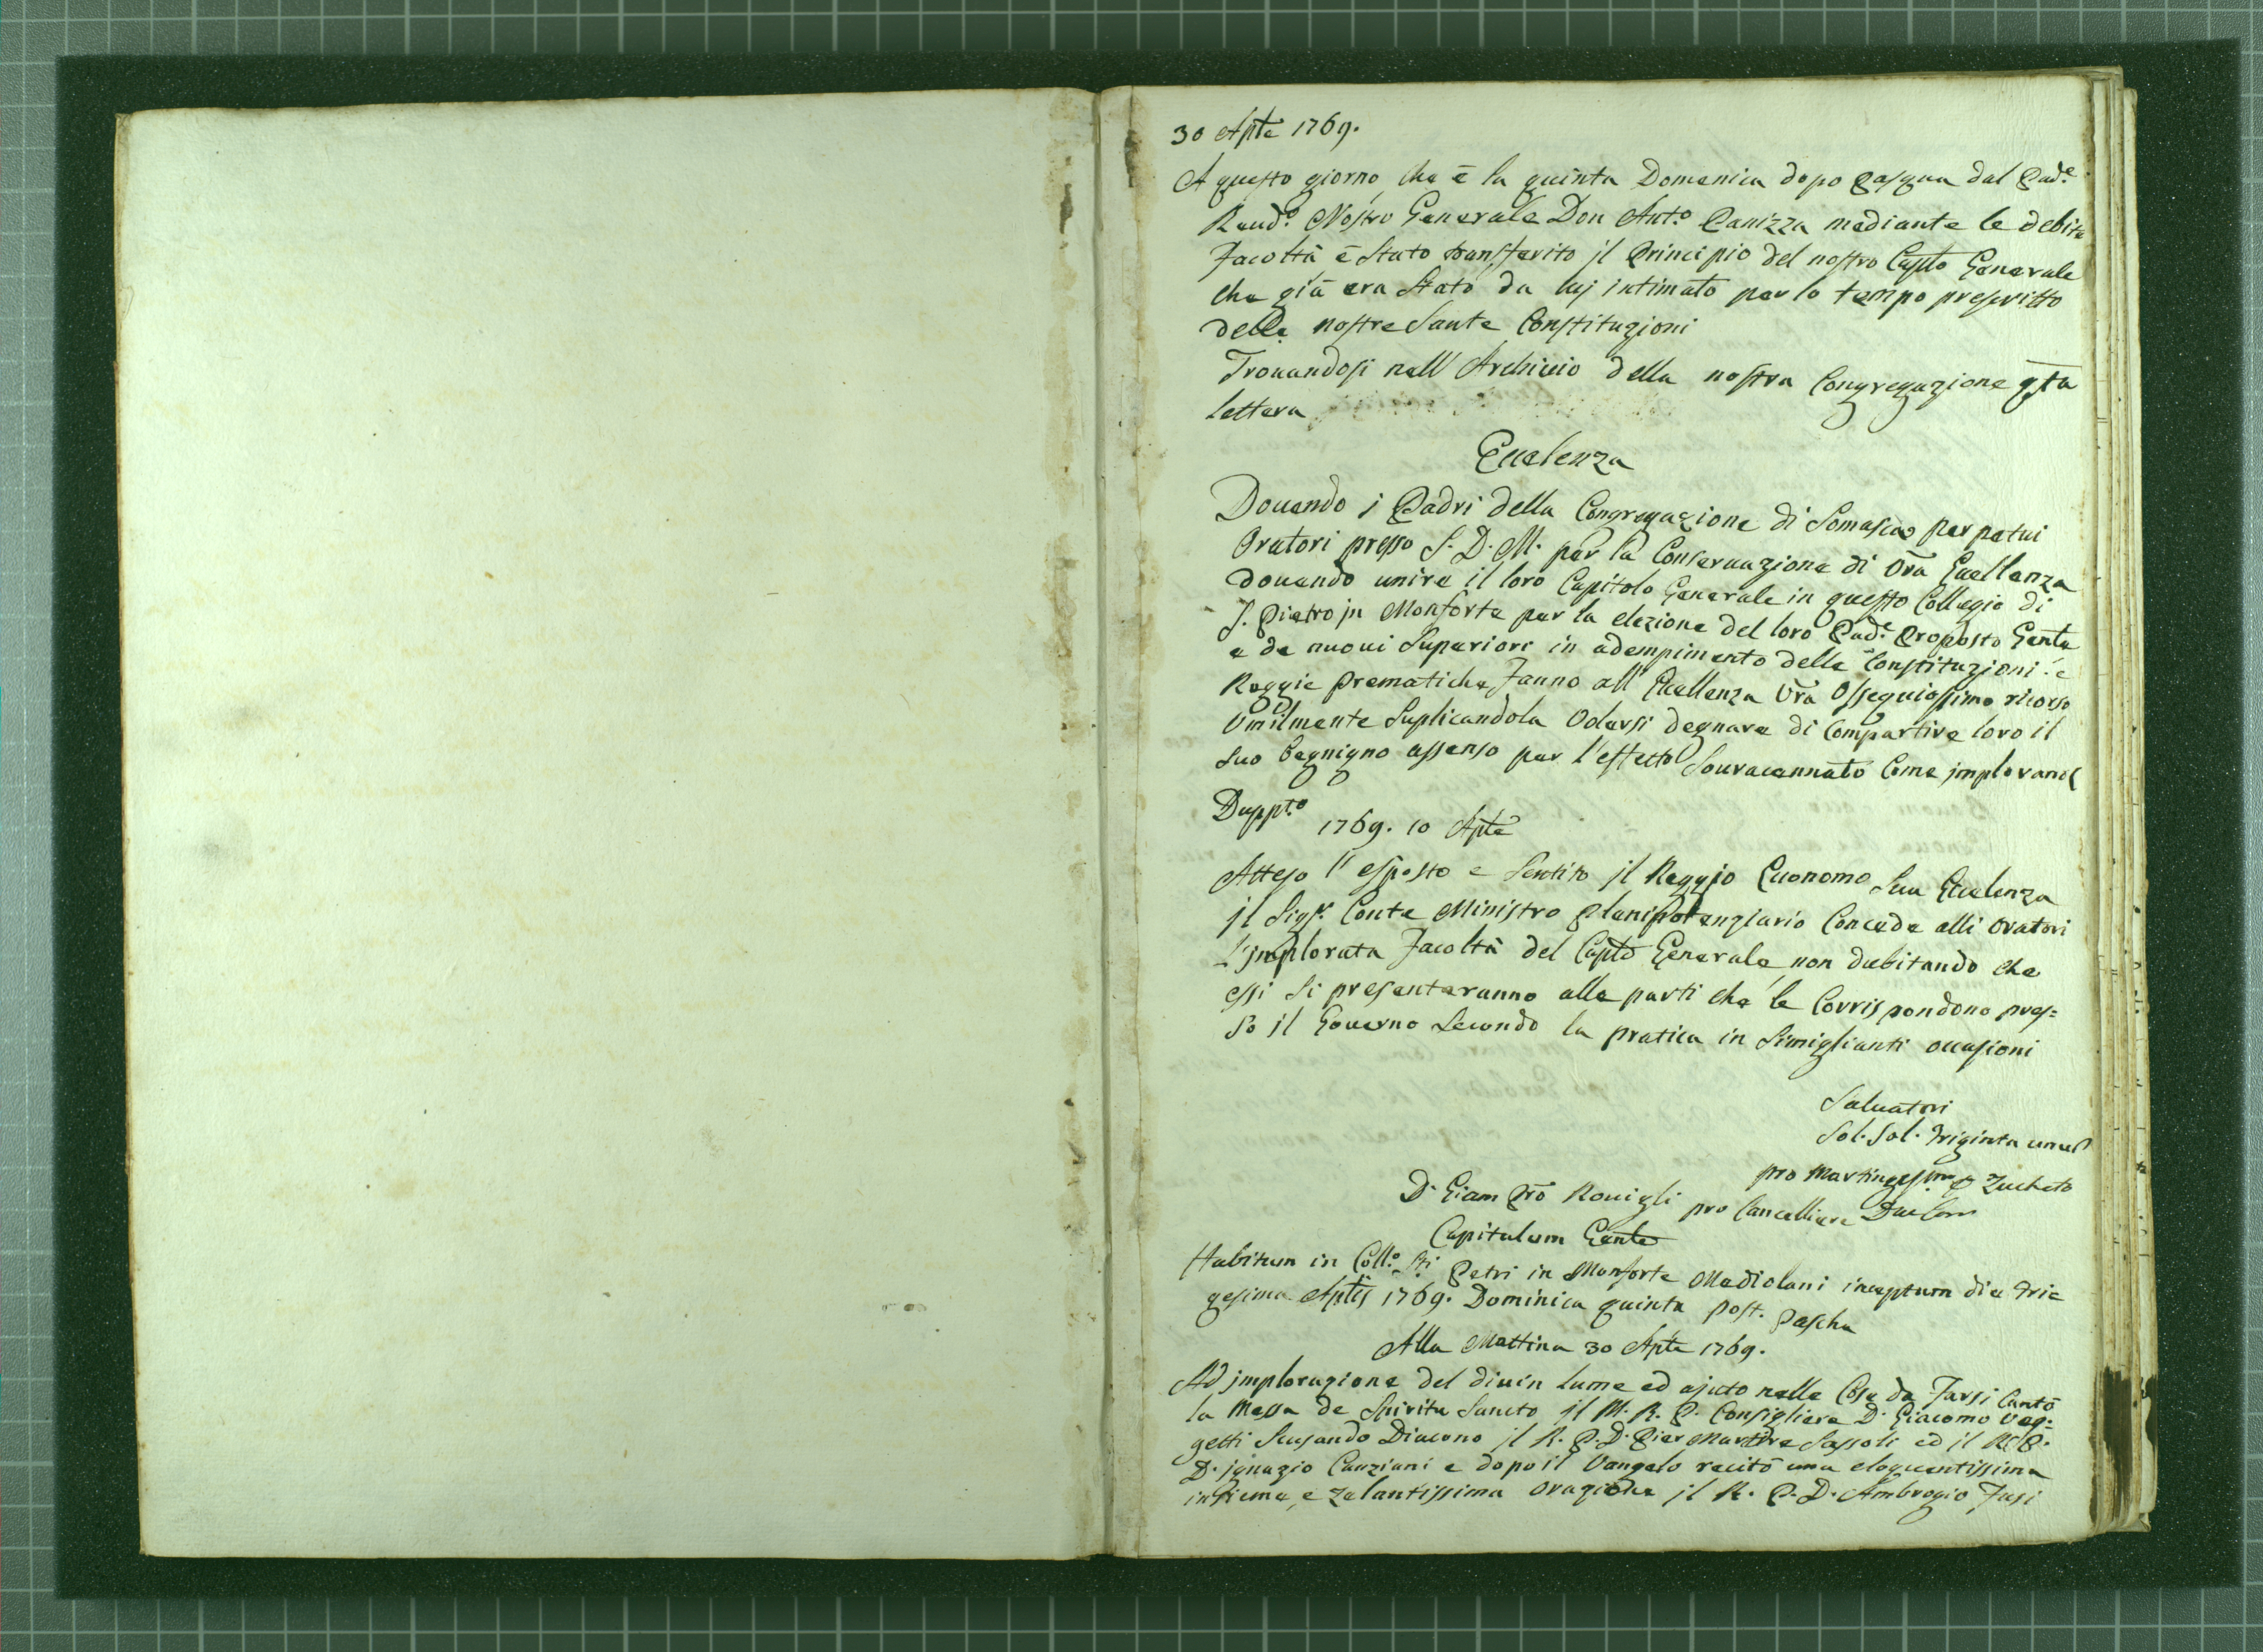 30 Aple 1769.
A questo giorno, che è la quinta Domenica dopo Pasqua dal Pad.e
Reud.o Nostro Generale Don Ant.o Panizza mediante le debite
facoltà è stato transferito jl Principio del nostro Caplo Generale
che già era stato da luj intimato per lo tempo prescritto
delle nostre Sante Constituzioni
Trouandosi nell' Archiuio della nostra Congregazione qta
lettera
Eccelenza
Douendo j Padri della Congregazione di Somasca perpetui
Oratori presso S. D. M. per la Conseruazione di Vra Eccellenza
douendo unire il loro Capitolo Generale in questo Collegio di
S. Pietro jn Monforte per la elezione del loro Pad.e Proposto Genle
e de nuoui Superiori in adempimento delle Constituzioni e
Reggie Prematiche fanno all' Eccellenza Vra Ossequiosissimo ricorso
Umilmente Suplicandola Volersi degnare di Compartire loro il
suo begnigno assenso per l'effetto Souracennato Come jmplorano
Duppt.o
1769. 10 Aple
Atteso l' esposto e Sentito jl Reggio Economo Sua Eccelenza
jl Sig.r Conte Ministro Plenipotenziario Concede alli Oratori
L'jmplorata facoltà del Caplo Generale, non dubitando che
essi si presenteranno alle parti che le Corrispondono pres=
so jl Gouerno Secondo la pratica in Simiglianti occasioni
Saluatori
Sol. Sol. Triginta unus
pro Zucheto
D. Giam Pro Rouigli pro Cancelliere
Capitulum Genle
Habitum in Coll.o Sti Petri in Monforte Mediolani inceptum die Tri=
gesima Aplis 1769. Dominica quinta post. Pascha
Alla Mattina 30 Aple 1769.
Ad jmplorazione del diuin lume ed ajuto nelle Cose da Farsi Cantò
la Messa de Spiritu Sancto jl M. R. P. Consigliere D. Giacomo Veg=
getti Seruendo Diacono jl R. P. D. Pier Martire Sassoli ed jl R. P.
D. jgnazio Canziani e dopo il Vangelo recitò una eloquentissima
insieme, e zelantissima orazione jl R. P. D. Ambrogio Fusi